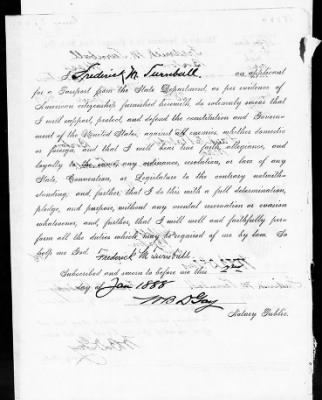 I Frederick M. Turnbull. an applicant
for a Passport from the State Department, as per evidence of
American citizenship furnished herewith, do solemnly swear that
I will support, protect, and defend the constitution and Govern-
ment of the United States, against all enemies, whether domestic
or foreign, and that I will bear true faith, allegiance, and
loyalty to the same, any ordinance, resolution, or law of any
State, Convention, or Legislature to the contrary notwith-
standing; and, further, that I do this with a full determination,
pledge, and purpose, without any mental reservation or evasion
whatsoever, and, further, that I will well and faithfully per-
form all the duties which may be required of me by law. So
help me God. Frederick M. Turnbull.
Subscribed and sworn to before me this
day of Jan 1888
Notary Public.